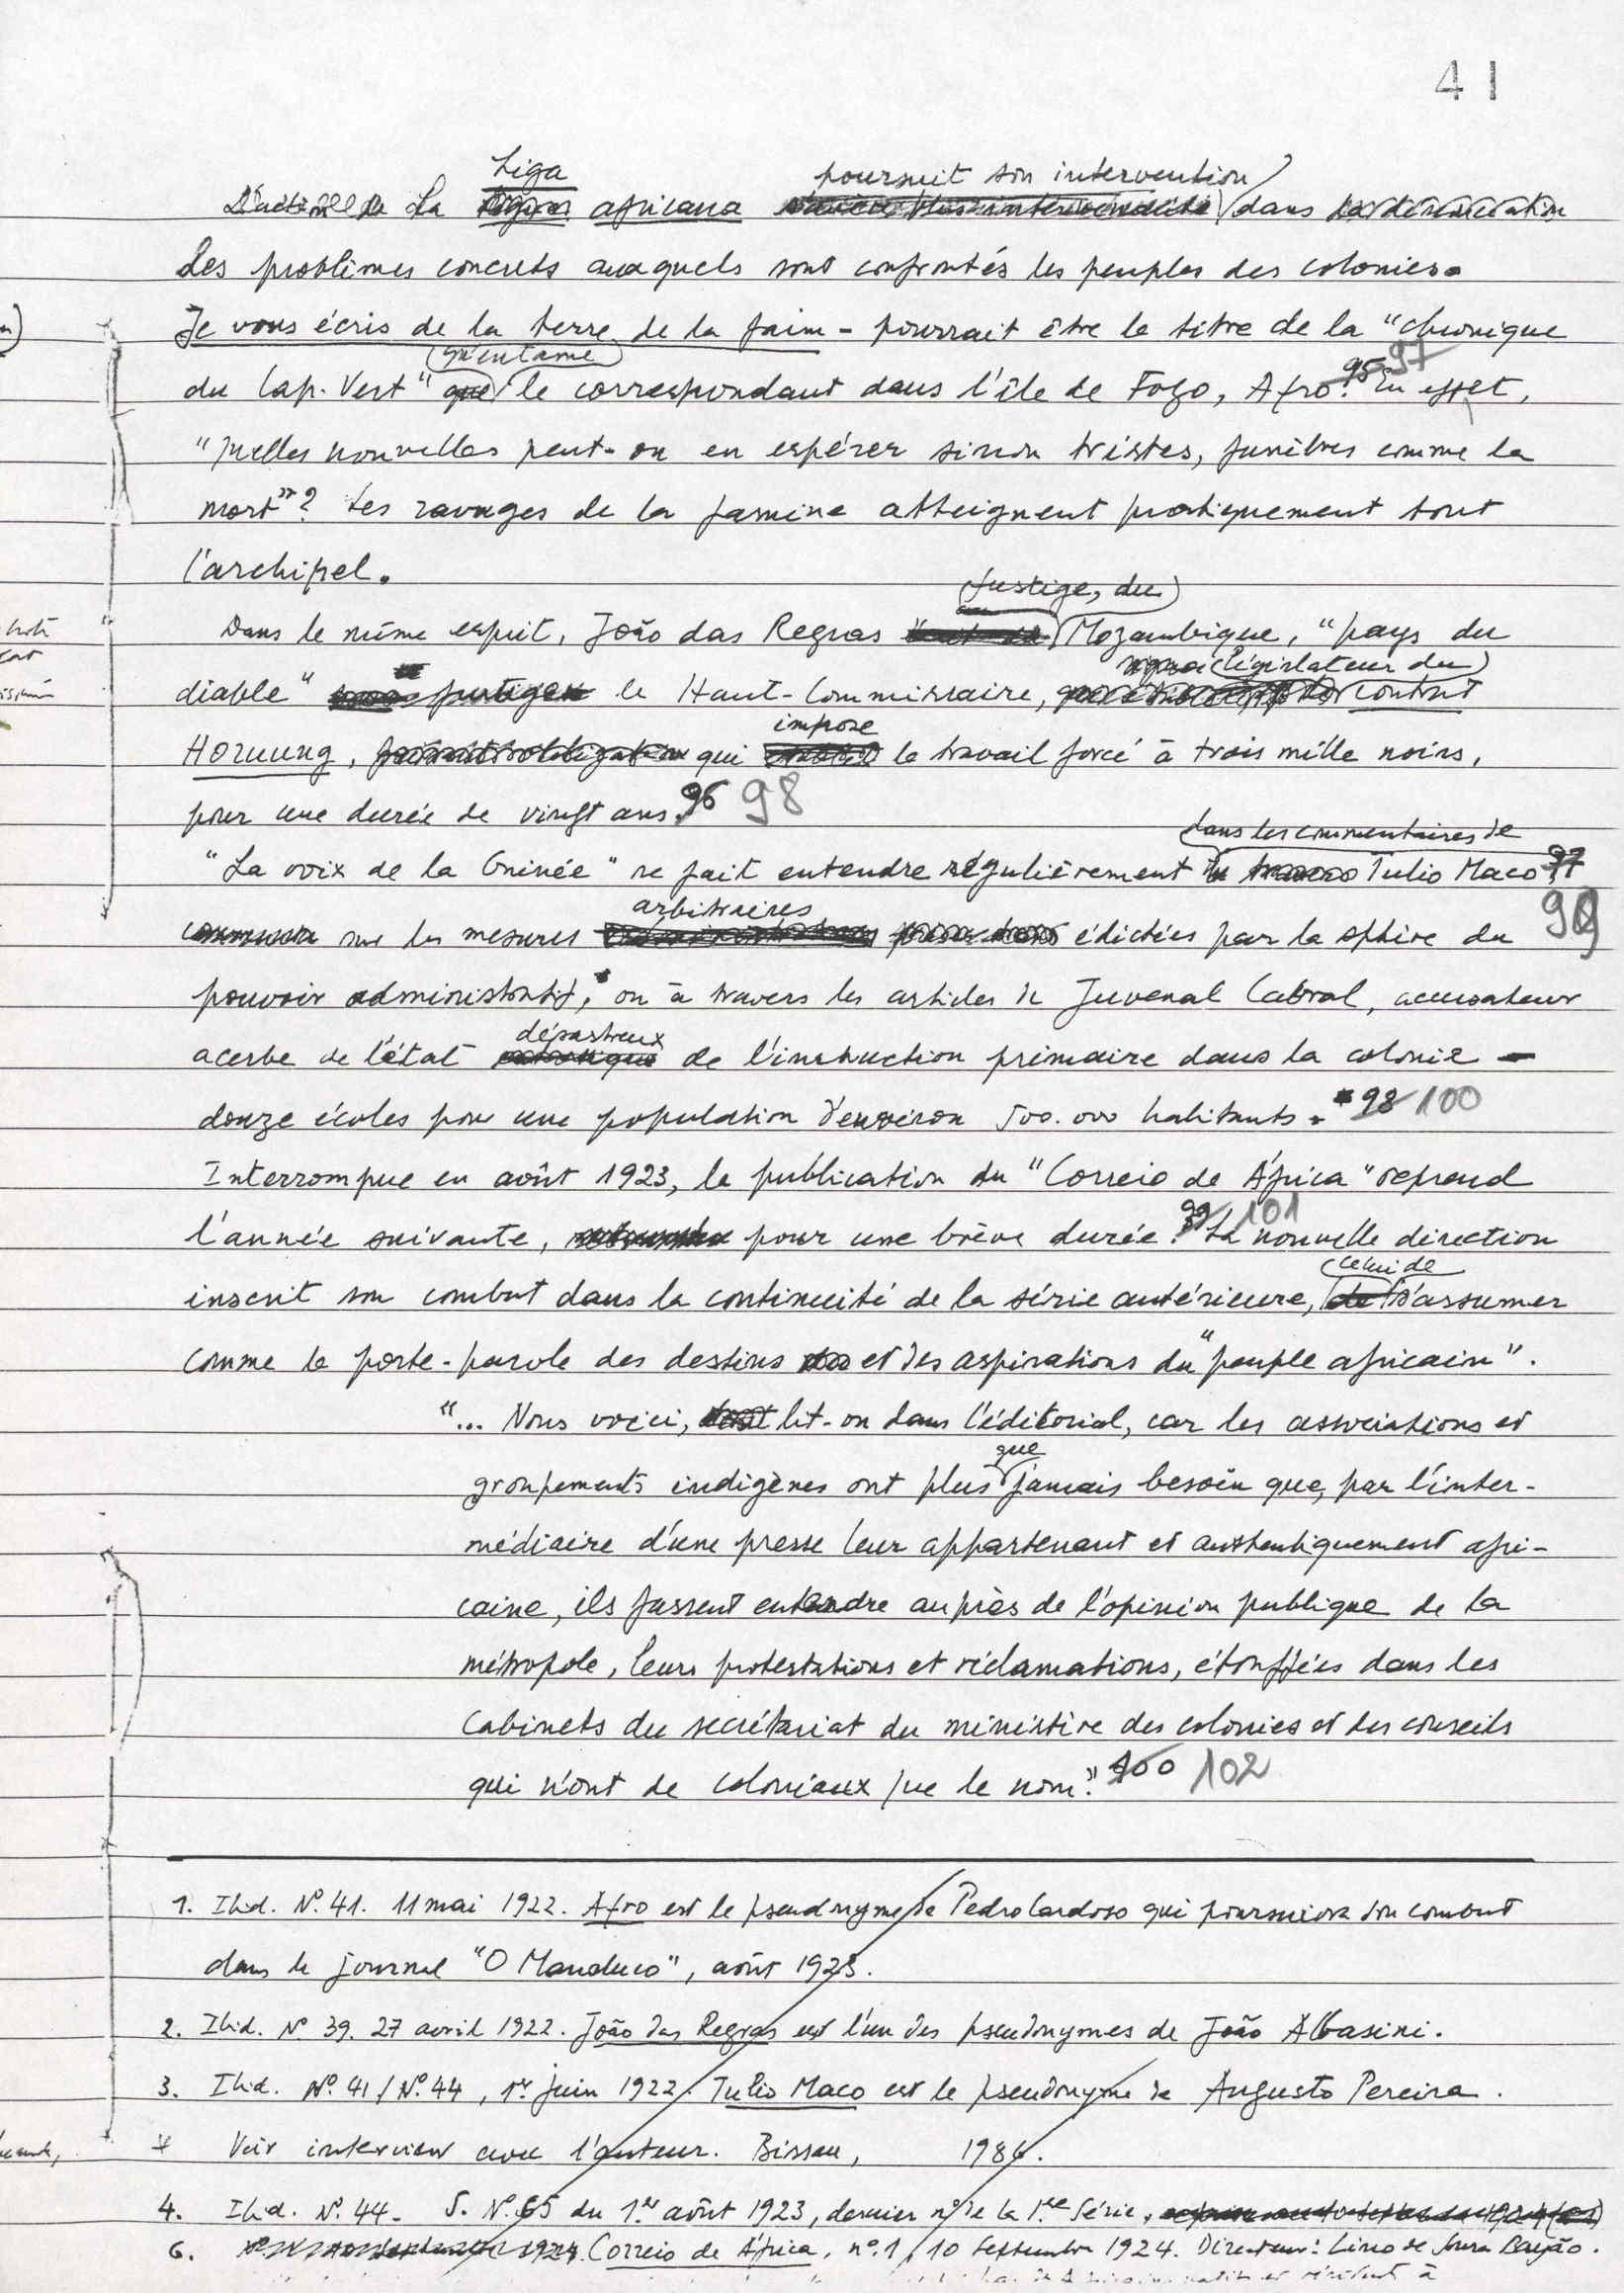 41
La Liga africana poursuit son intervention dans
les problèmes concrets auxquels sont confrontés les peuples des colonies.
Je vous écris de la terre de la faim - pourrait être le titre de la "chronique
du Cap-Vert" qu'entame le correspondant dans l'île de Fogo, Afro. 95 97 En effet,
"quelles nouvelles peut-on en espérer sinon tristes, funèbres comme la
mort"? Les ravages de la famine atteignent pratiquement tout
l'archipel.
Dans le même esprit, João das Regras fustige, du Mozambique, "pays du
diable" le Haut-Commissaire, législateur du contrat
Hornung, qui impose le travail forcé à trois mille noirs,
pour une durée de vingt ans. 96 98
"La voix de la Guinée" se fait entendre régulièrement dans les commentaires de Tulio Maco 97
99
sur les mesures arbitraires édictées par la sphère du
pouvoir administratif, ou à travers les articles de Juvenal Cabral, accusateur
acerbe de l'état désastreux de l'instruction primaire dans la colonie -
douze écoles pour une population d'environ 500.000 habitants. 98 100
Interrompue en août 1923, la publication du "Correio de África" reprend
l'année suivante, pour une brève durée. 99 101 La nouvelle direction
inscrit son combat dans la continuité de la série antérieure, celui de s'assumer
comme le porte-parole des destins et des aspirations du "peuple africain".
"... Nous voici, lit-on dans l'éditorial, car les associations et
groupements indigènes ont plus que jamais besoin que, par l'inter-
médiaire d'une presse leur appartenant et authentiquement afri-
caine, ils fassent entendre auprès de l'opinion publique de la
métropole, leurs protestations et réclamations, étouffées dans les
cabinets du secrétariat du ministère des colonies et des conseils
qui n'ont de coloniaux que le nom." 100 102
1. Ibid. Nº 41. 11 mai 1922. Afro est le pseudonyme de Pedro Cardoso qui poursuivra son combat
dans le journal "O Manduco", août 1923.
2. Ibid. Nº 39. 27 avril 1922. João das Regras est l'un des pseudonymes de João Albasini.
3. Ibid. Nº 41 / Nº 44, 1er juin 1922. Tulio Maco est le pseudonyme de Augusto Pereira.
* Voir interview avec l'auteur. Bissau, 1986.
4. Ibid. Nº 44. 5. Nº 65 du 1er août 1923, dernier nº de la 1ère Série,
6. Correio de África, nº 1, 10 Septembre 1924. Directeur: Lino de Sousa Bayão.